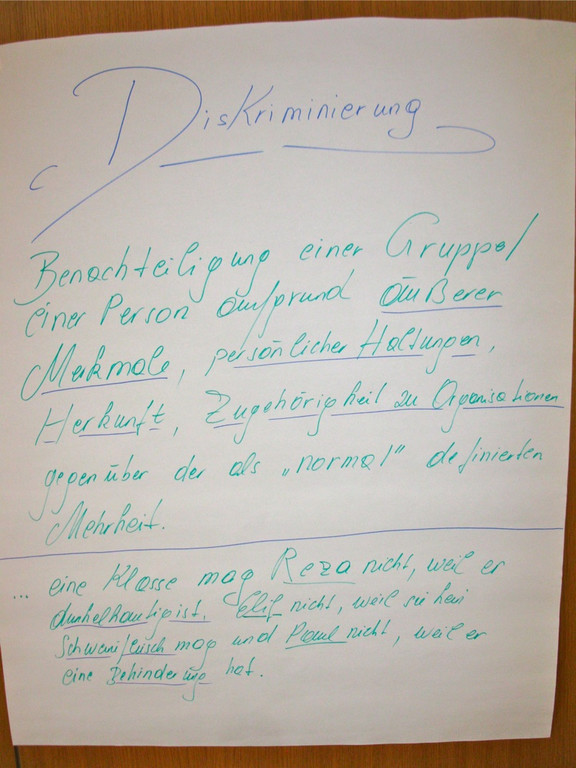 Diskriminierung
Benachteiligung einer Gruppe/
einer Person aufgrund äußerer
Merkmale, persönlicher Haltungen,
Herkunft, Zugehörigkeit zu Organisationen
gegenüber der als „normal" definierten
Mehrheit.
... eine Klasse mag Reza nicht, weil er
dunkelhäutig ist, Elif nicht, weil sie kein
Schweinefleisch mag und Paul nicht, weil er
eine Behinderung hat.